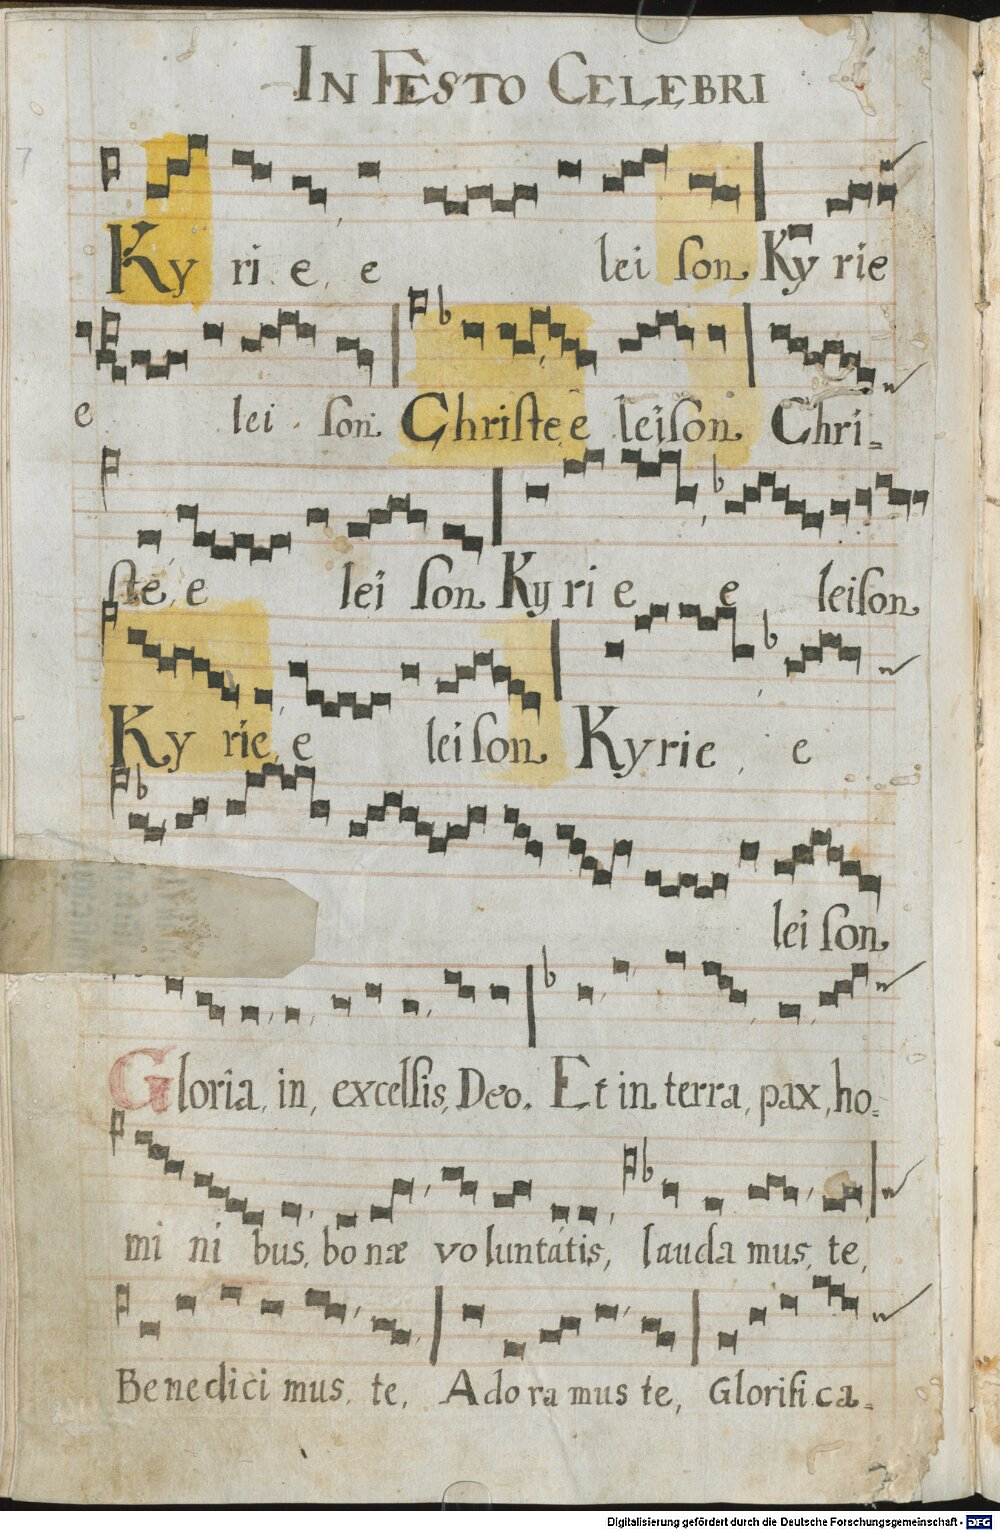 IN FESTO CELEBRI
7
Ky ri e, e lei ſon Ky rie
e lei ſon Chriſte e leiſon Chri-
ſte, e lei ſon Ky ri e e leiſon
Ky rie, e leiſon Kyrie, e
lei ſon
Gloria, in, excelſis, Deo. Et in terra, pax, ho-
mi ni bus, bo næ voluntátis, lauda mus, te,
Benedici mus, te, Adoramus te, Glorifi ca-
Digitalisierung gefördert durch die Deutsche Forschungsgemeinschaft - DFG